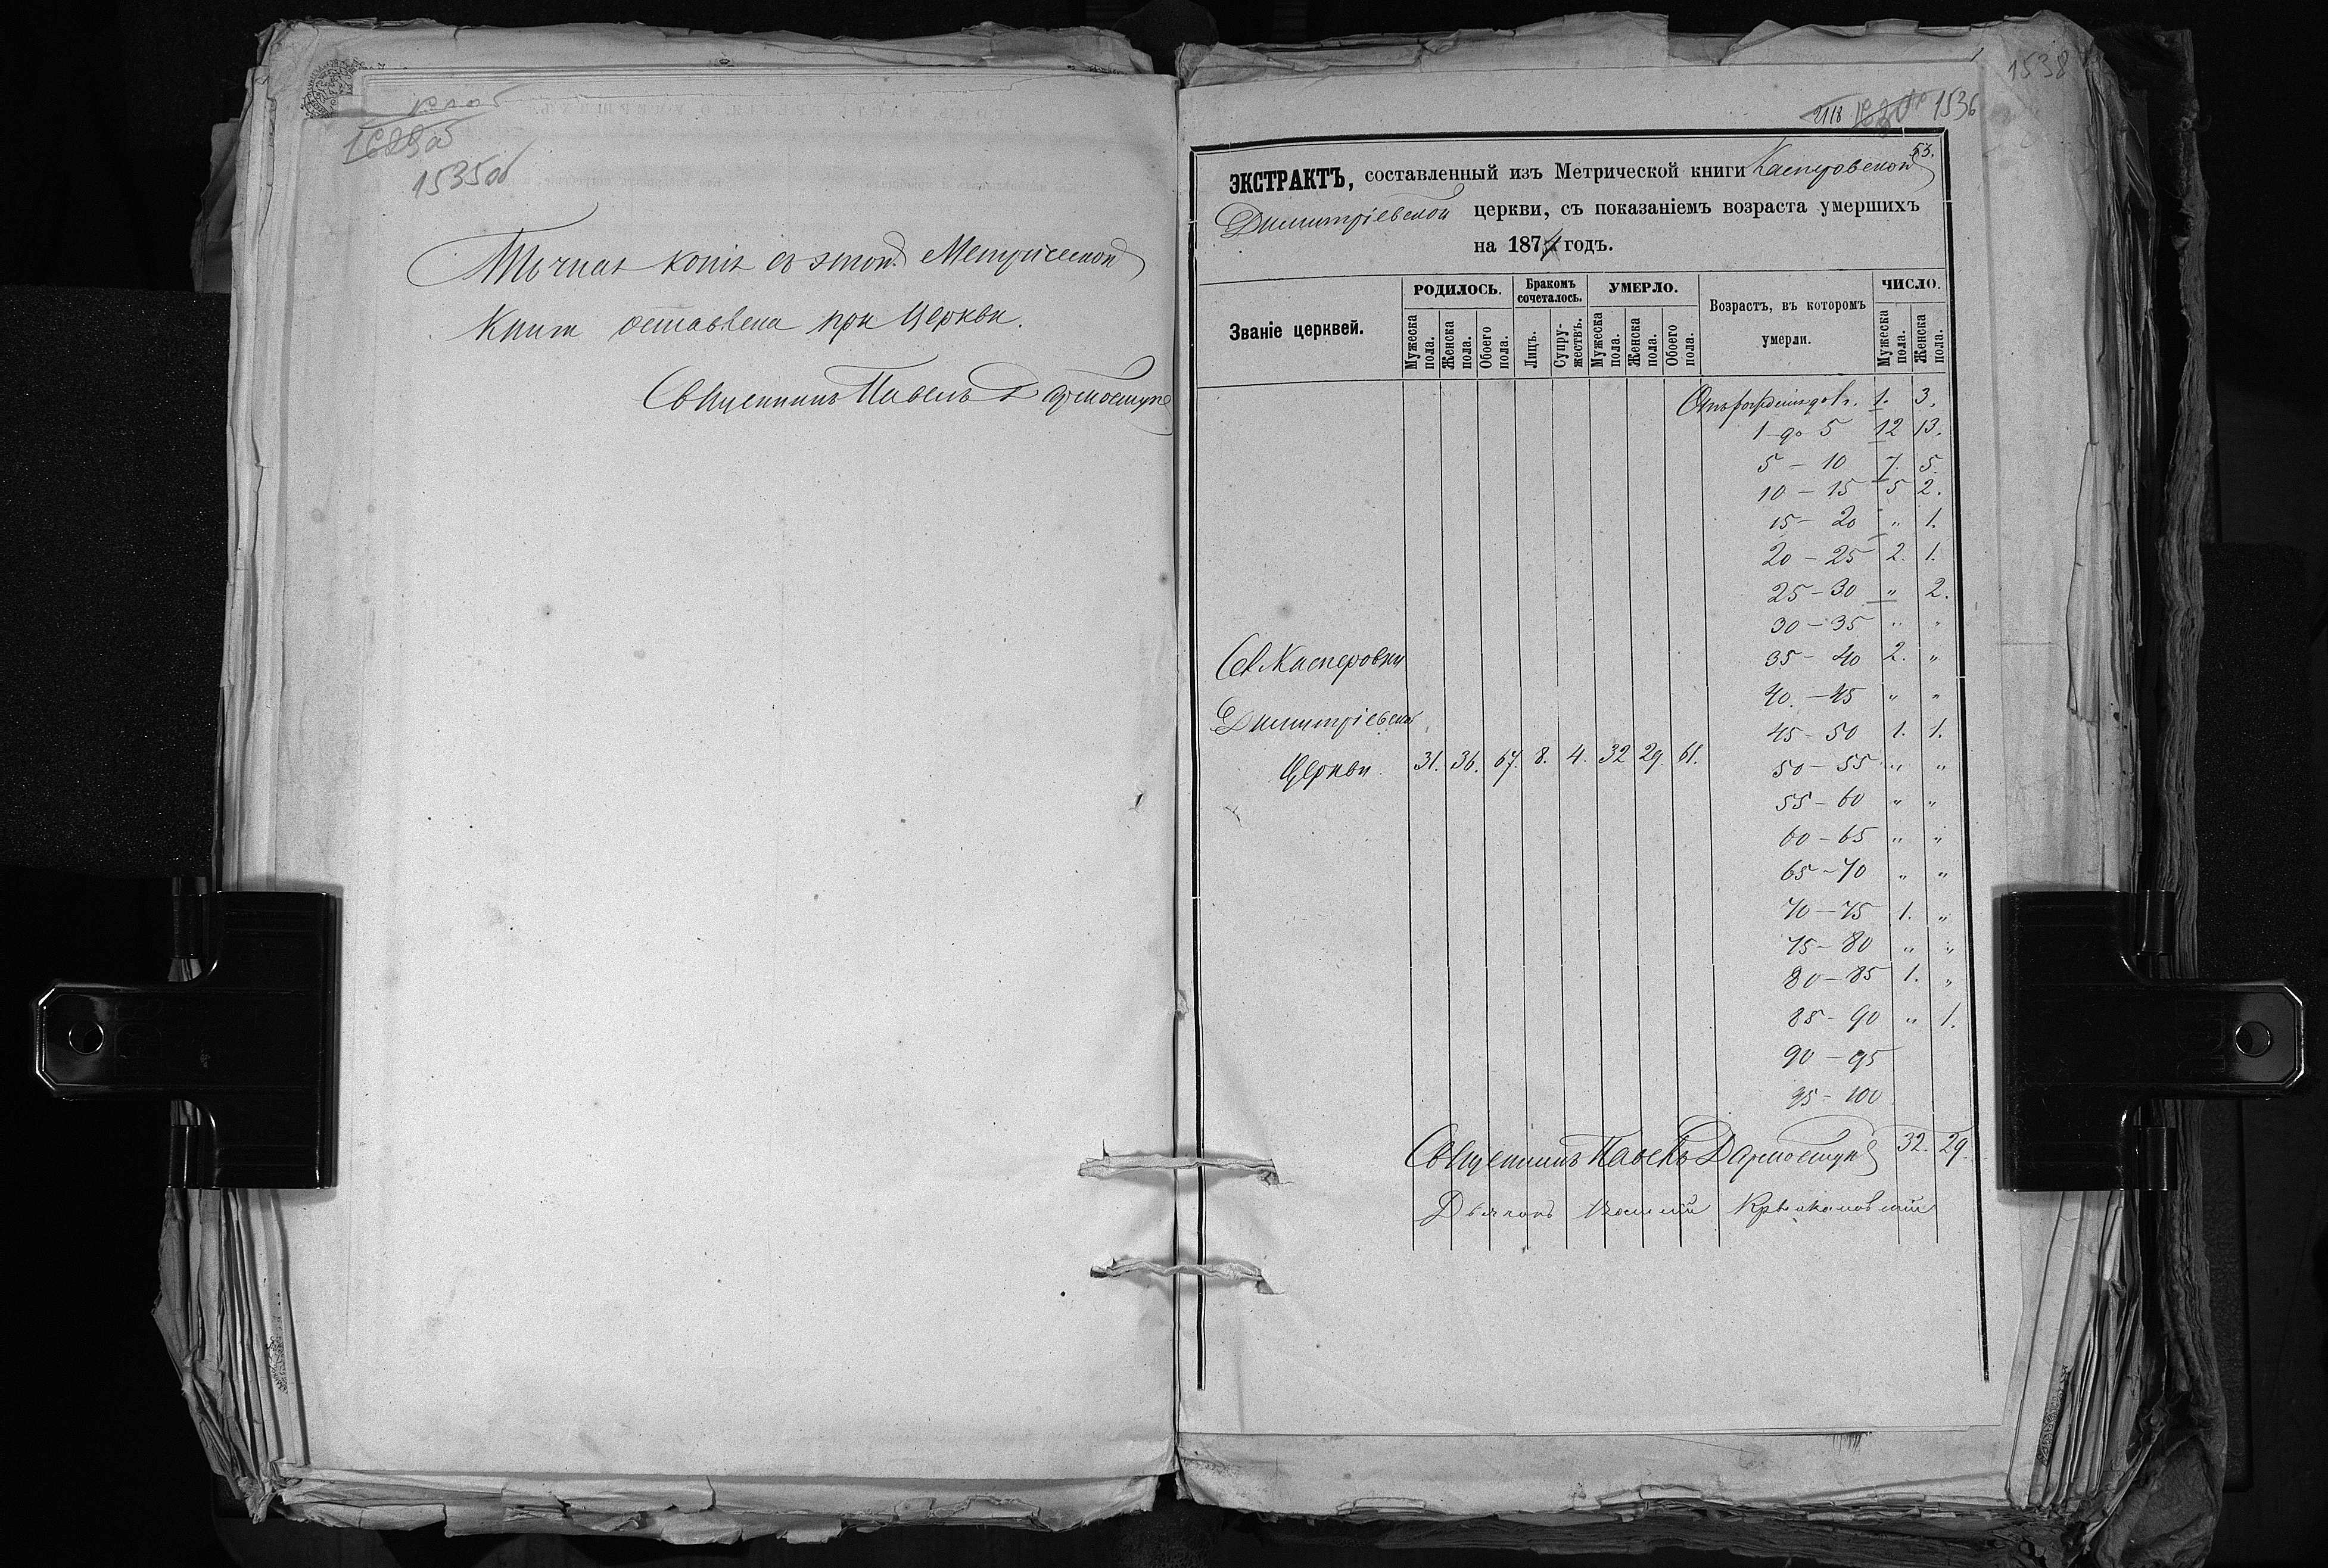 1535об
Точная копія съ этой Метрической
Книги оставлена при Церкви.
Священникъ Павелъ
1538
2118 1536
53.
ЭКСТРАКТЪ, составленный изъ Метрической книги Касперовской
Димитріевской церкви, съ показаніемъ возраста умершихъ
на 1874 годъ.
Званіе церквей. РОДИЛОСЬ. Бракомъ сочеталось. УМЕРЛО. Возрастъ, въ которомъ умерли. ЧИСЛО.
Мужеска пола. Женска пола. Обоего пола. Лицъ. Супружествъ. Мужеска пола. Женска пола. Обоего пола. Мужеска пола. Женска пола.
Отъ рожденія до 1. 1. 3.
1 до 5 12 13.
5 – 10 7. 5.
10 – 15 5 2.
15 – 20 " 1.
20 – 25 2. 1.
25 – 30 " 2.
30 – 35 " "
Св. Касперовки 35 – 40 2. "
40 – 45 " "
Димитріевской 45 – 50 1. 1.
Церкви. 31. 36. 67. 8. 4. 32 29. 61. 50 – 55 " "
55 – 60 " "
60 – 65 " "
65 – 70 " "
70 – 75 1. "
75 – 80 " "
80 – 85 1. "
85 – 90 " 1.
90 – 95
95 – 100
Священникъ Павелъ 32. 29.
Дьячокъ